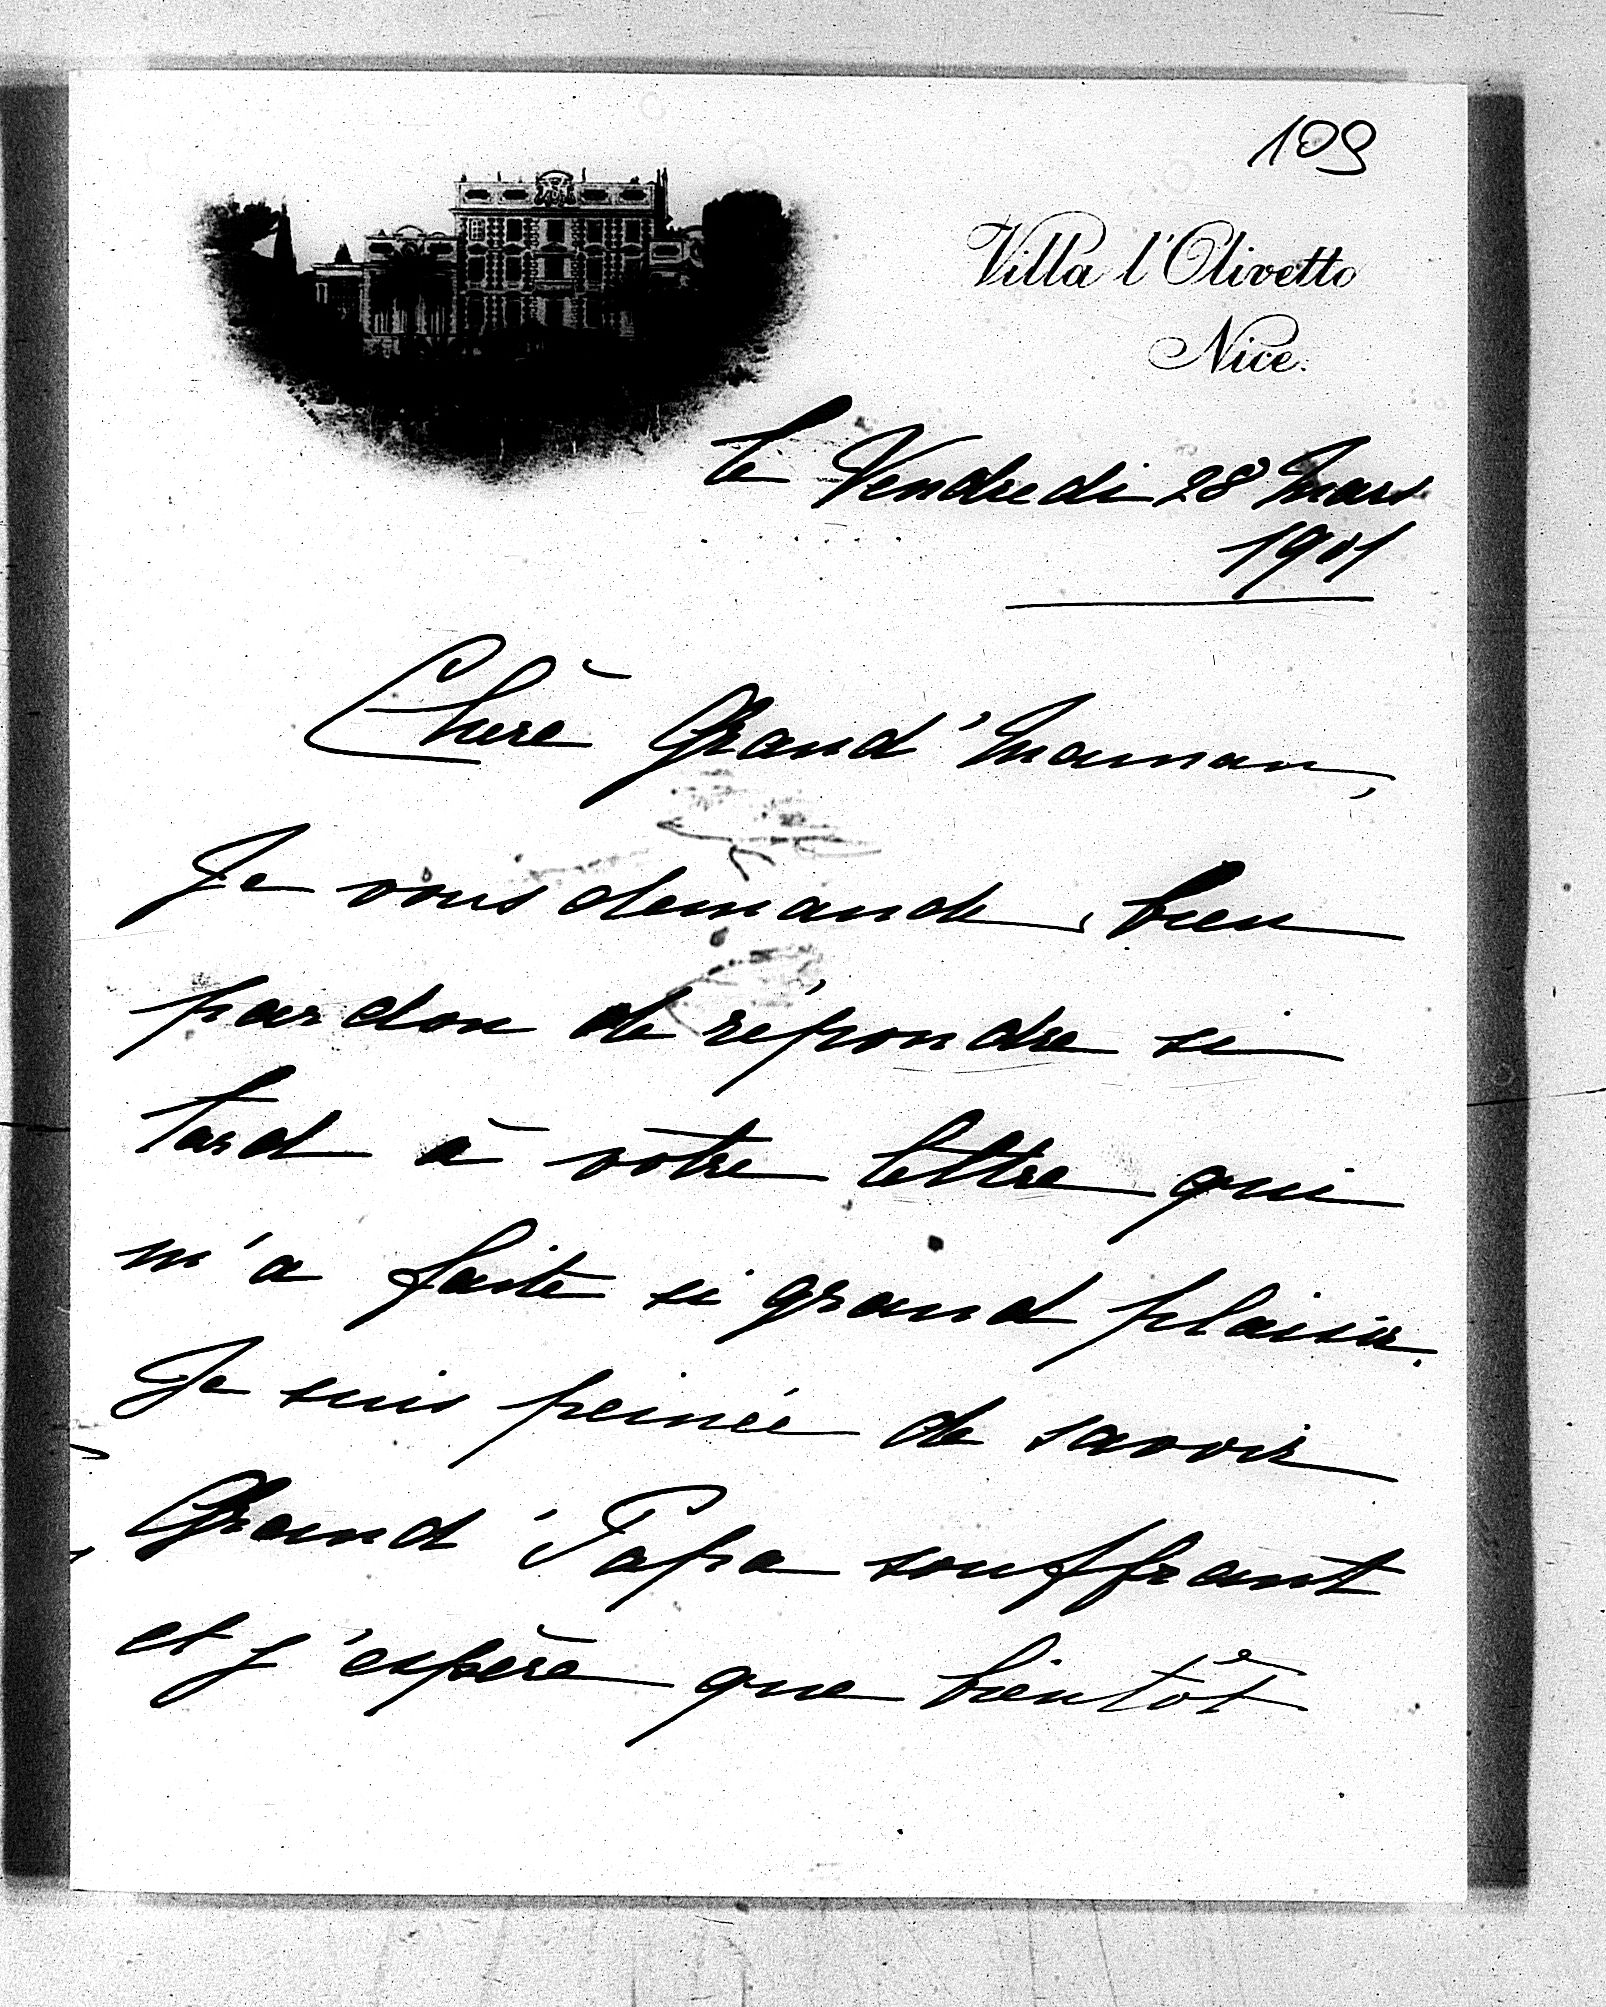 109
Villa l'Olivetto
Nice.
le Vendredi 28 Mars
1901
Chère Grand'Maman,
Je vous demande bien
pardon de répondre si
tard à votre lettre qui
m'a faite si grand plaisir.
Je suis peinée de savoir
Grand'Papa souffrant
et j'espère que bientôt